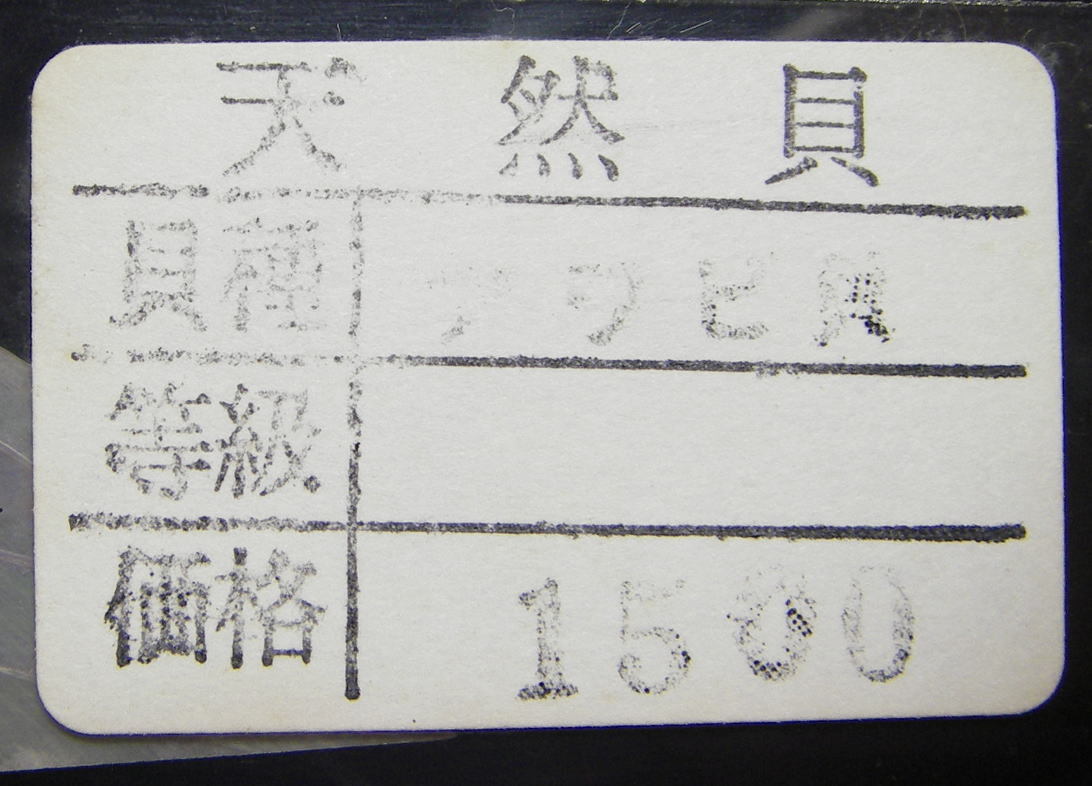 天然貝
貝種 アワビ貝
等級
価格 1500